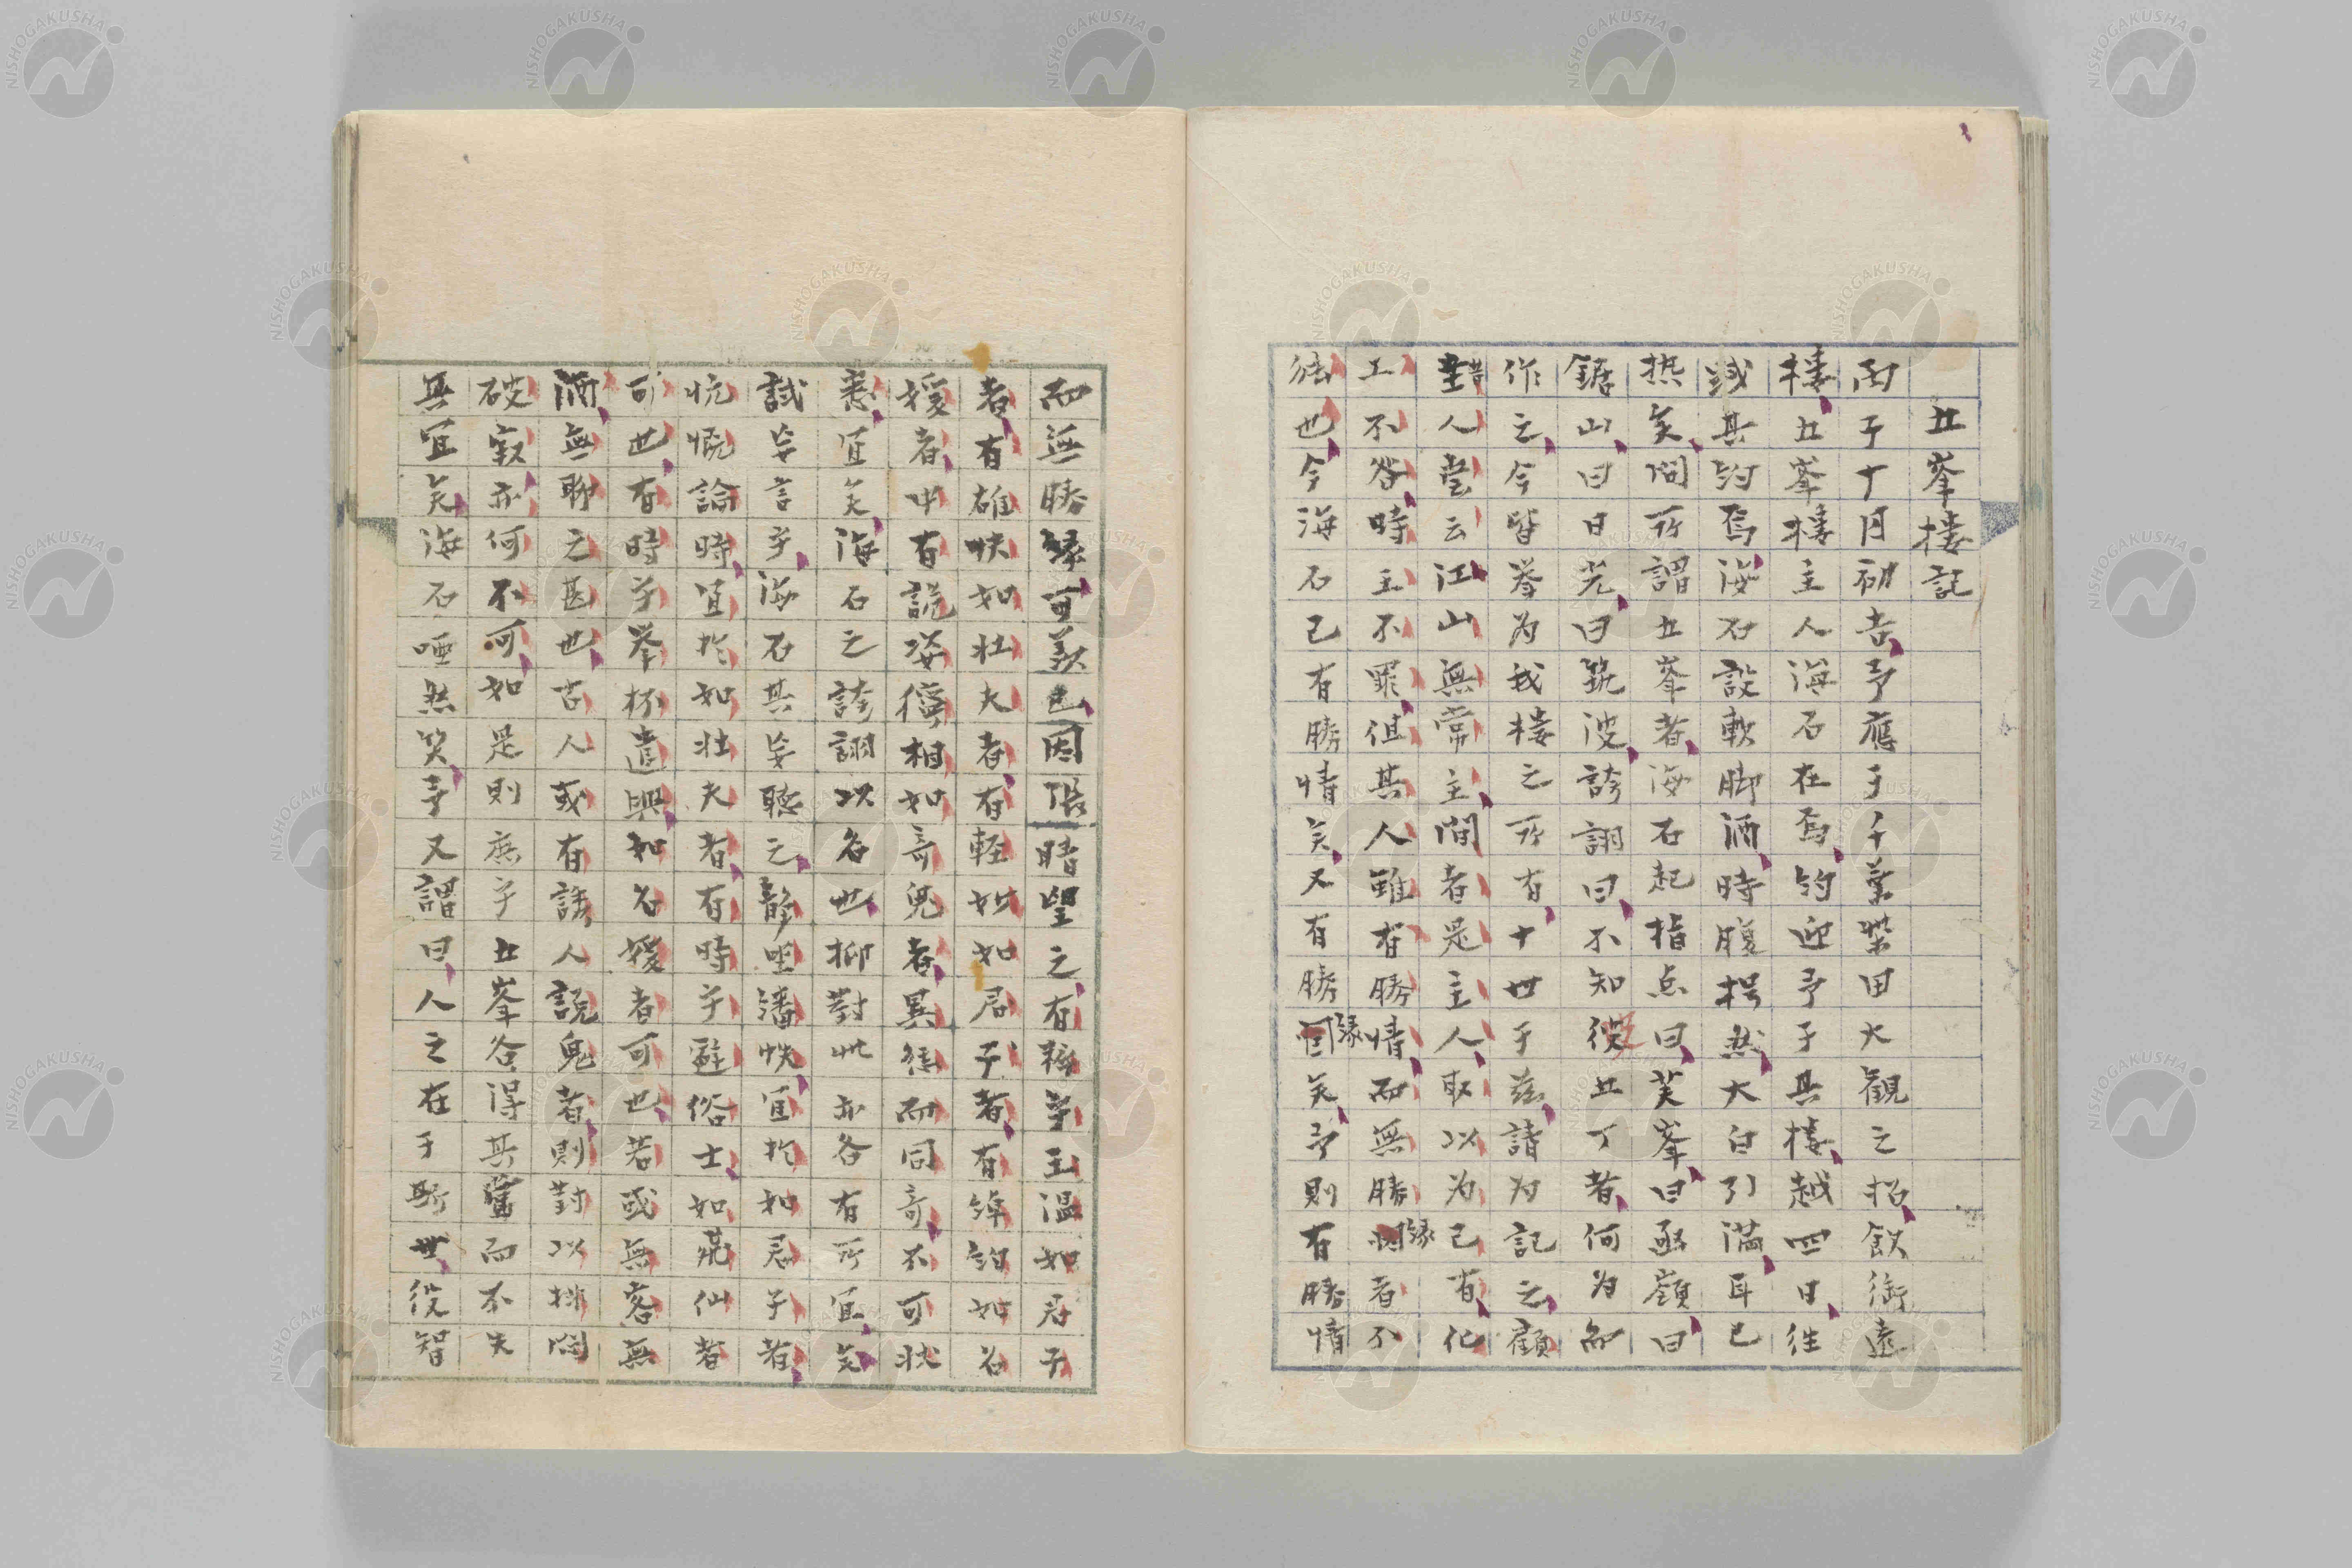 五峯樓記
丙子十月初吉予應于千葉柴田大觀之招飲衒遠
樓五峯樓主人海石在焉約迎予于其樓越四日往
践其約焉海石設軟脚酒時腹枵然大白引滿耳已
热矣問所謂五峯者海石起指点曰芙峯曰函嶺曰
鋸山曰日光曰筑波誇詡曰不知役五丁者何为而
作之今皆举为我樓之所有十世于茲請为記之顧
昔人嘗云江山無常主間者是主人取以为己有化
工不咎時主不罪但其人雖有勝情而無勝緣者不
能也今海石已有勝情矣又有勝緣矣予則有勝情
而無勝緣可羡也因張晴望之有粹乎玉温如君子
者有雄快如壮夫者有軽妙如居士者有綽約如名
媛者中有詭姿獰相如奇鬼者異態而同奇不可狀
悉宜矣海石之誇詡以名世也抑對此亦各有所宜矣
試妄言乎海石其妄聴之静坐瀋怏宜於如君子者
忼慨論時宜於如壮夫者有時乎避俗士如飛仙者
可也有時乎举杯遣興如名媛者可也若或無客無
酒無聊之甚也古人或有誘人說鬼者則對以排悶
破寂亦何不可如是則庶乎五峯各得其當而不失
其宜矣海石唾然笑予又謂曰人之在于斯世役智